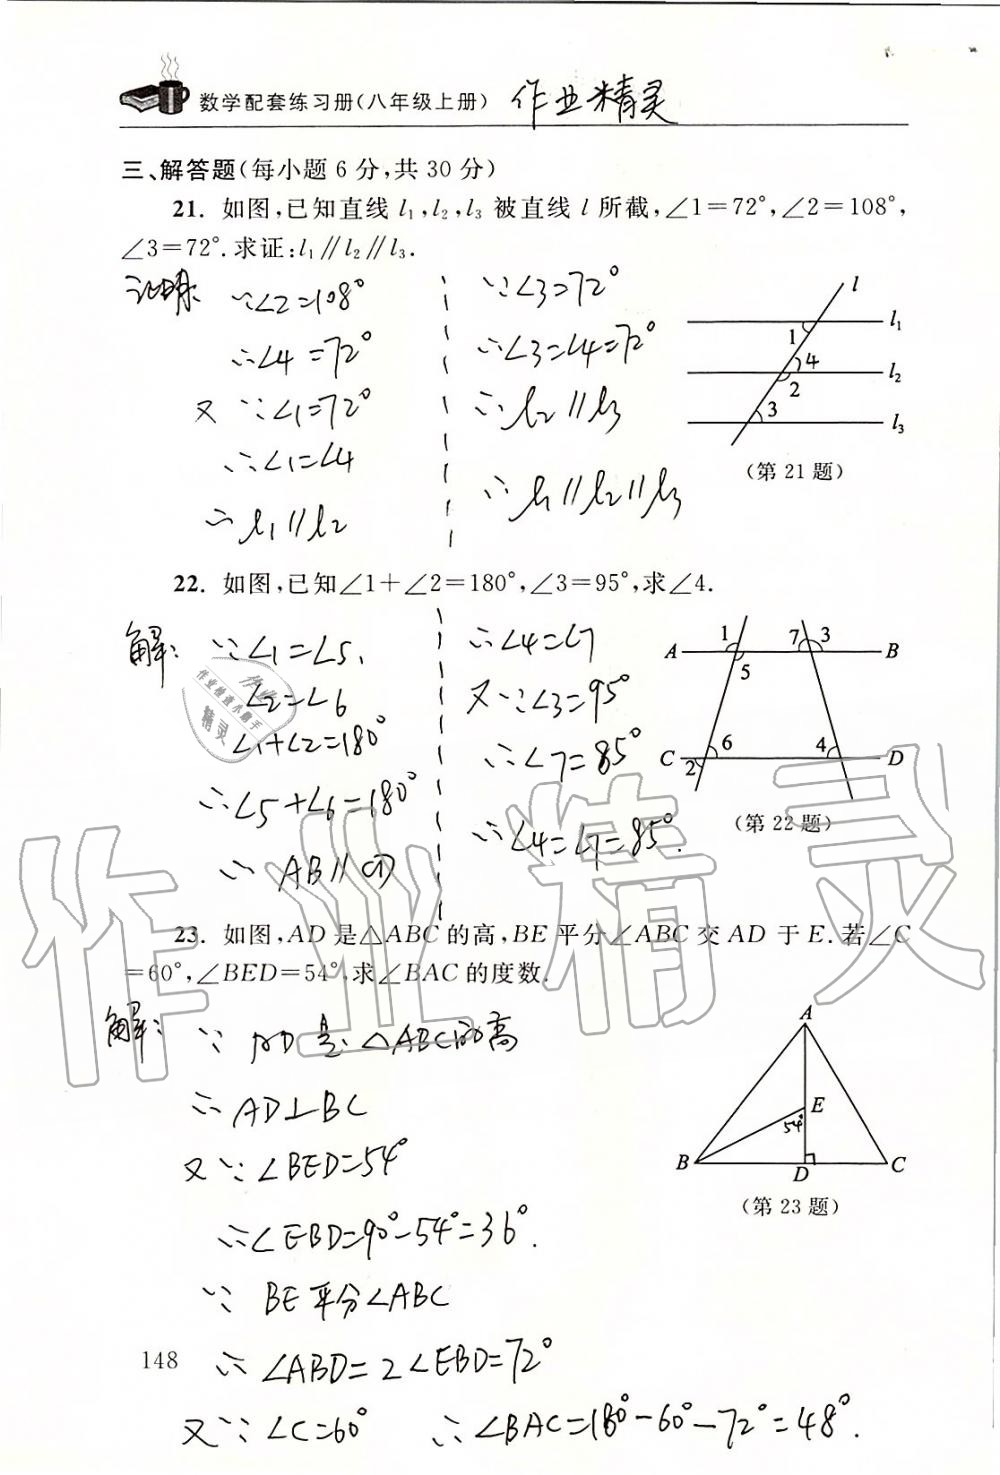 数学配套练习册(八年级上册) 作业精灵
三、解答题(每小题 6 分,共 30 分)
21. 如图,已知直线 l₁,l₂,l₃ 被直线 l 所截,∠1=72°,∠2=108°,
∠3=72°.求证:l₁∥l₂∥l₃.
证明: ∵∠2=108°
∴∠4=72°
又∵∠1=72°
∴∠1=∠4
∴l₁∥l₂
∵∠3=72°
∴∠3=∠4=72°
∴l₂∥l₃
∴l₁∥l₂∥l₃
l
l₁
1
4
l₂
2
3
l₃
(第 21 题)
22. 如图,已知∠1+∠2=180°,∠3=95°,求∠4.
解: ∵∠1=∠5,
∠2=∠6
∠1+∠2=180°
∴∠5+∠6=180°
∴AB∥CD
∴∠4=∠7
又∵∠3=95°
∴∠7=85°
∴∠4=∠7=85°.
1 7 3
A B
5
6 4
C D
2
(第 22 题)
23. 如图,AD 是△ABC 的高,BE 平分∠ABC 交 AD 于 E.若∠C
=60°,∠BED=54°,求∠BAC 的度数.
解: ∵AD是△ABC的高
∴AD⊥BC
又∵∠BED=54°
∴∠EBD=90°-54°=36°.
∵BE平分∠ABC
∴∠ABD=2∠EBD=72°
又∵∠C=60° ∴∠BAC=180°-60°-72°=48°.
A
E
54°
B D C
(第 23 题)
148
作业精灵